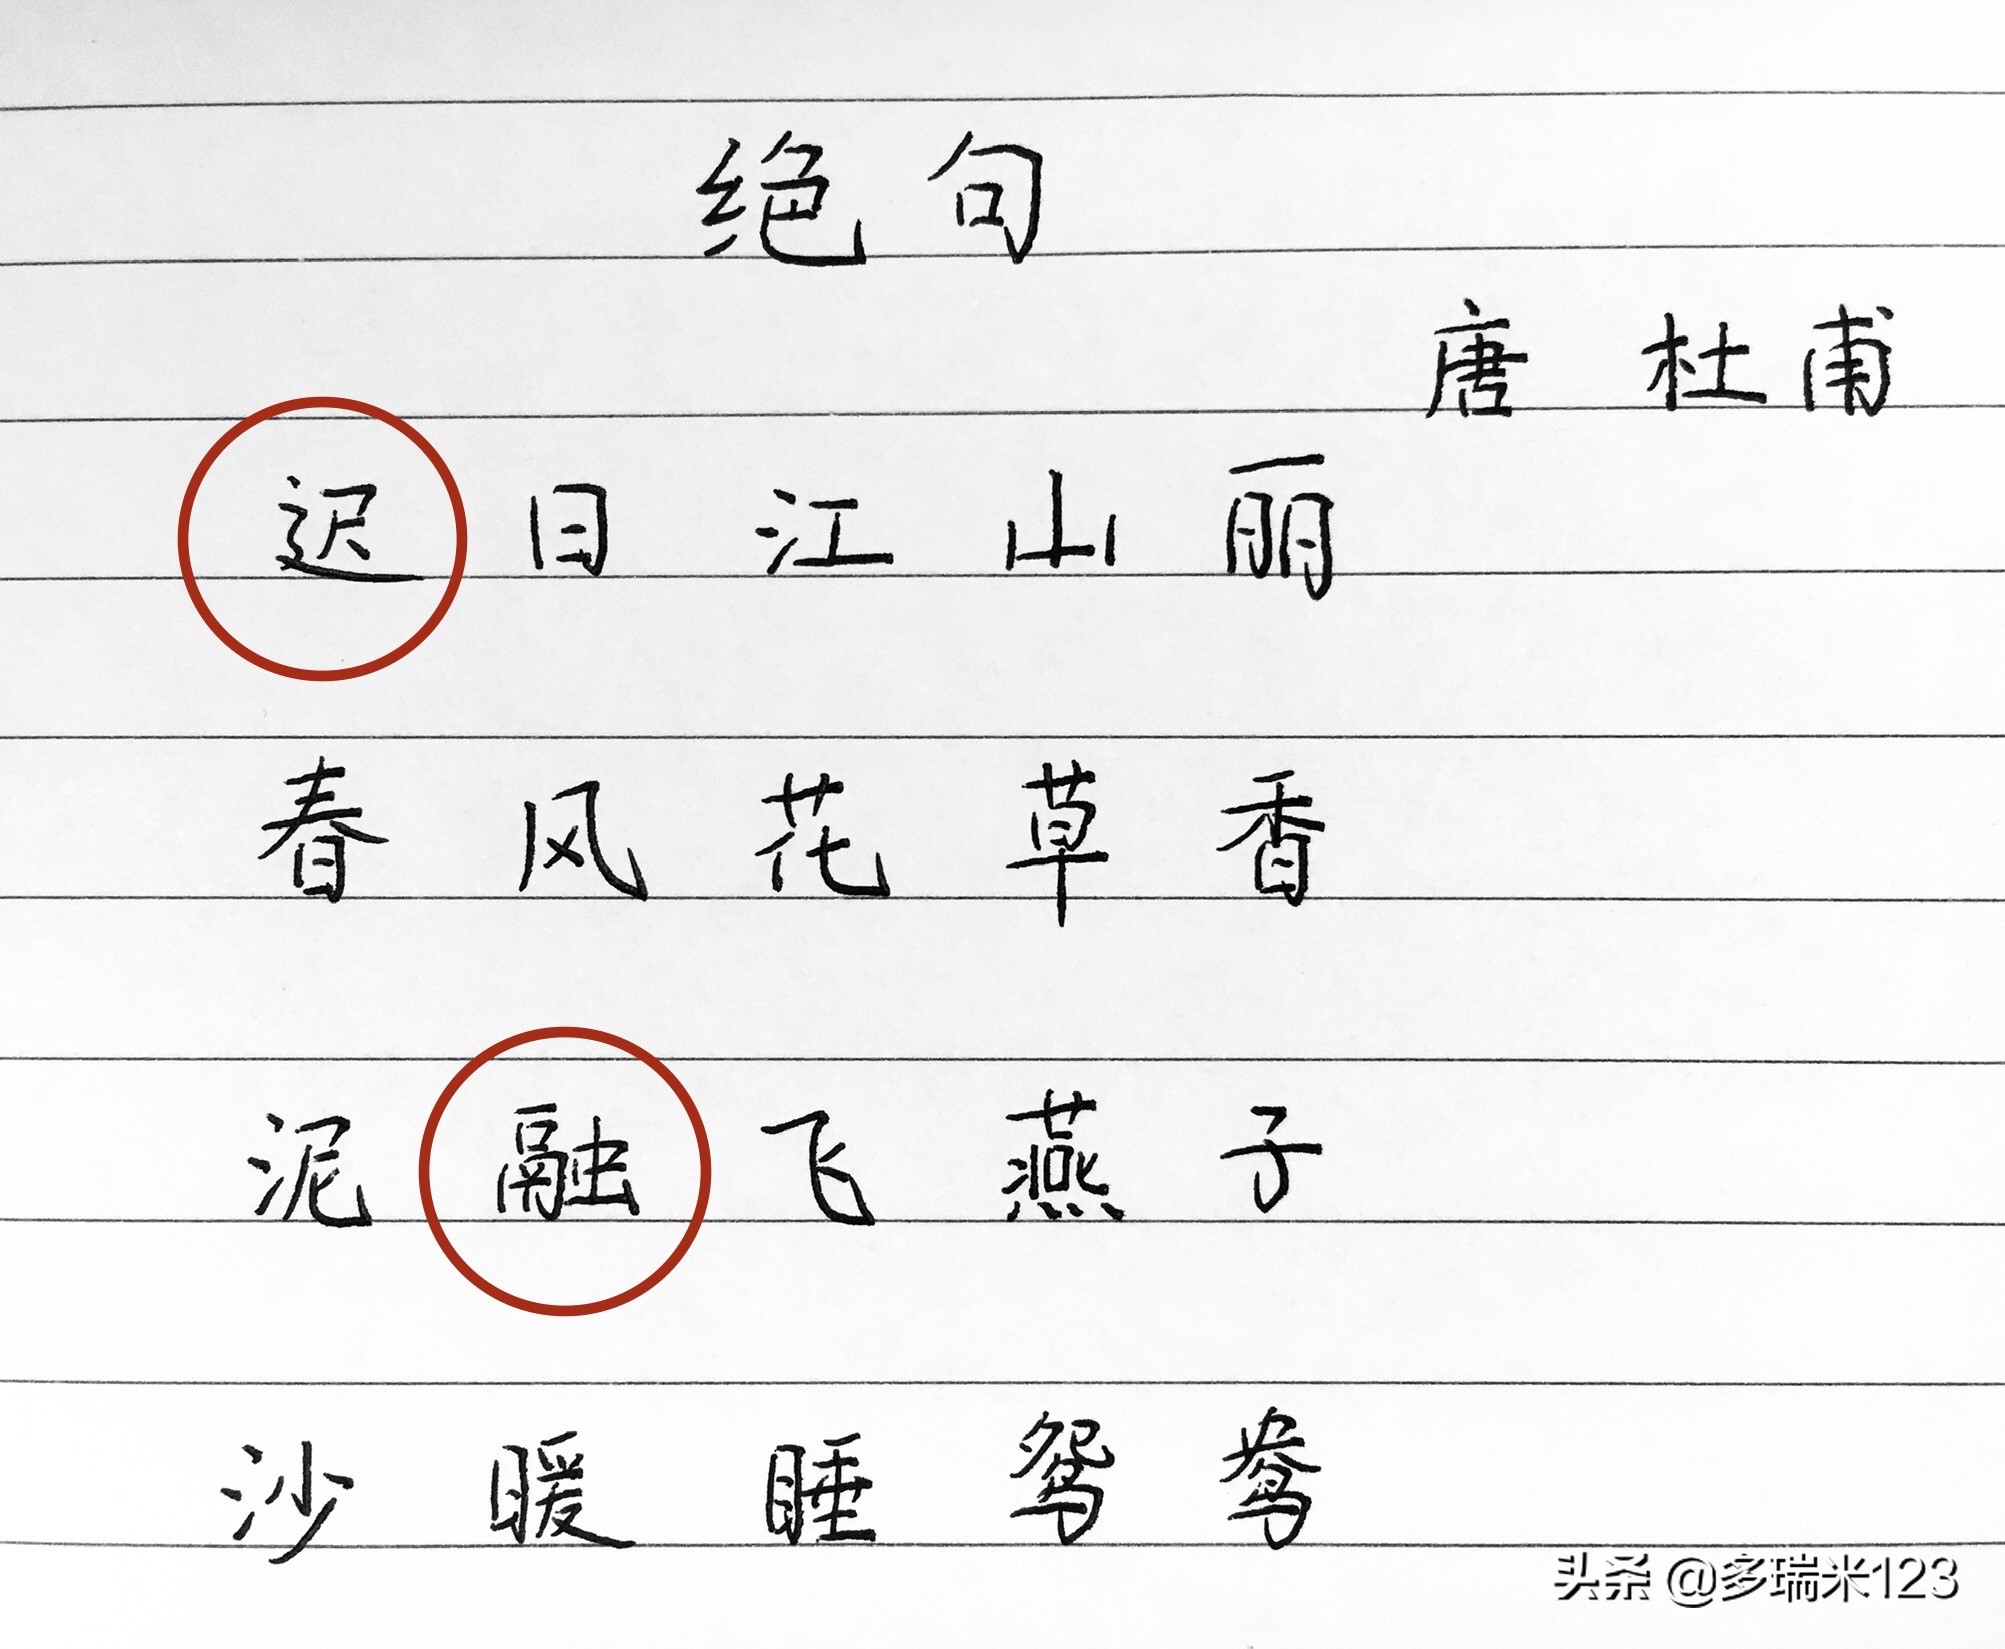 绝句
唐 杜甫
迟日江山丽
春风花草香
泥融飞燕子
沙暖睡鸳鸯
头条 @多瑞米123